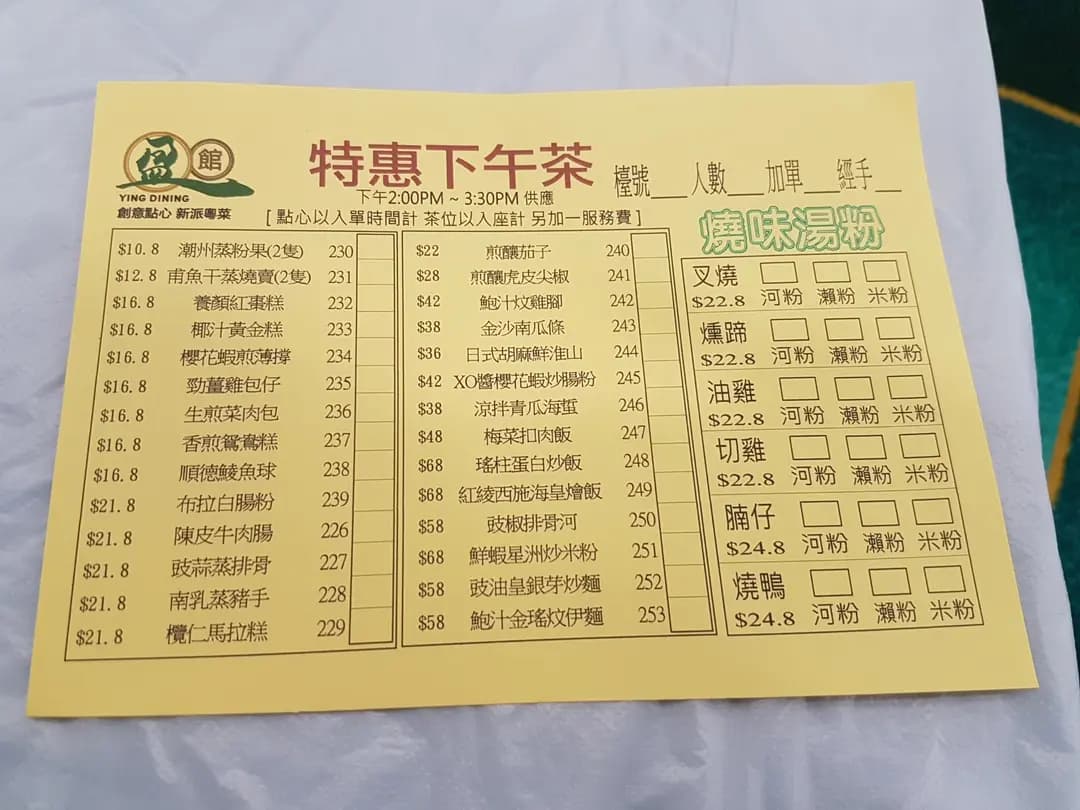 盈館
YING DINING
創意點心 新派粵菜
特惠下午茶
下午2:00PM ~ 3:30PM 供應
[ 點心以入單時間計 茶位以入座計 另加一服務費 ]
檯號___人數___加單___經手___
$10.8 潮州蒸粉果(2隻) 230
$12.8 甫魚干蒸燒賣(2隻) 231
$16.8 養顏紅棗糕 232
$16.8 椰汁黃金糕 233
$16.8 櫻花蝦煎薄撐 234
$16.8 勁薑雞包仔 235
$16.8 生煎菜肉包 236
$16.8 香煎鴛鴦糕 237
$16.8 順德鯪魚球 238
$21.8 布拉白腸粉 239
$21.8 陳皮牛肉腸 226
$21.8 豉蒜蒸排骨 227
$21.8 南乳蒸豬手 228
$21.8 欖仁馬拉糕 229
$22 煎釀茄子 240
$28 煎釀虎皮尖椒 241
$42 鮑汁炆雞腳 242
$38 金沙南瓜條 243
$36 日式胡麻鮮淮山 244
$42 XO醬櫻花蝦炒腸粉 245
$38 涼拌青瓜海蜇 246
$48 梅菜扣肉飯 247
$68 瑤柱蛋白炒飯 248
$68 紅綾西施海皇燴飯 249
$58 豉椒排骨河 250
$68 鮮蝦星洲炒米粉 251
$58 豉油皇銀芽炒麵 252
$58 鮑汁金瑤炆伊麵 253
燒味湯粉
叉燒
$22.8 河粉 瀨粉 米粉
燻蹄
$22.8 河粉 瀨粉 米粉
油雞
$22.8 河粉 瀨粉 米粉
切雞
$22.8 河粉 瀨粉 米粉
腩仔
$24.8 河粉 瀨粉 米粉
燒鴨
$24.8 河粉 瀨粉 米粉